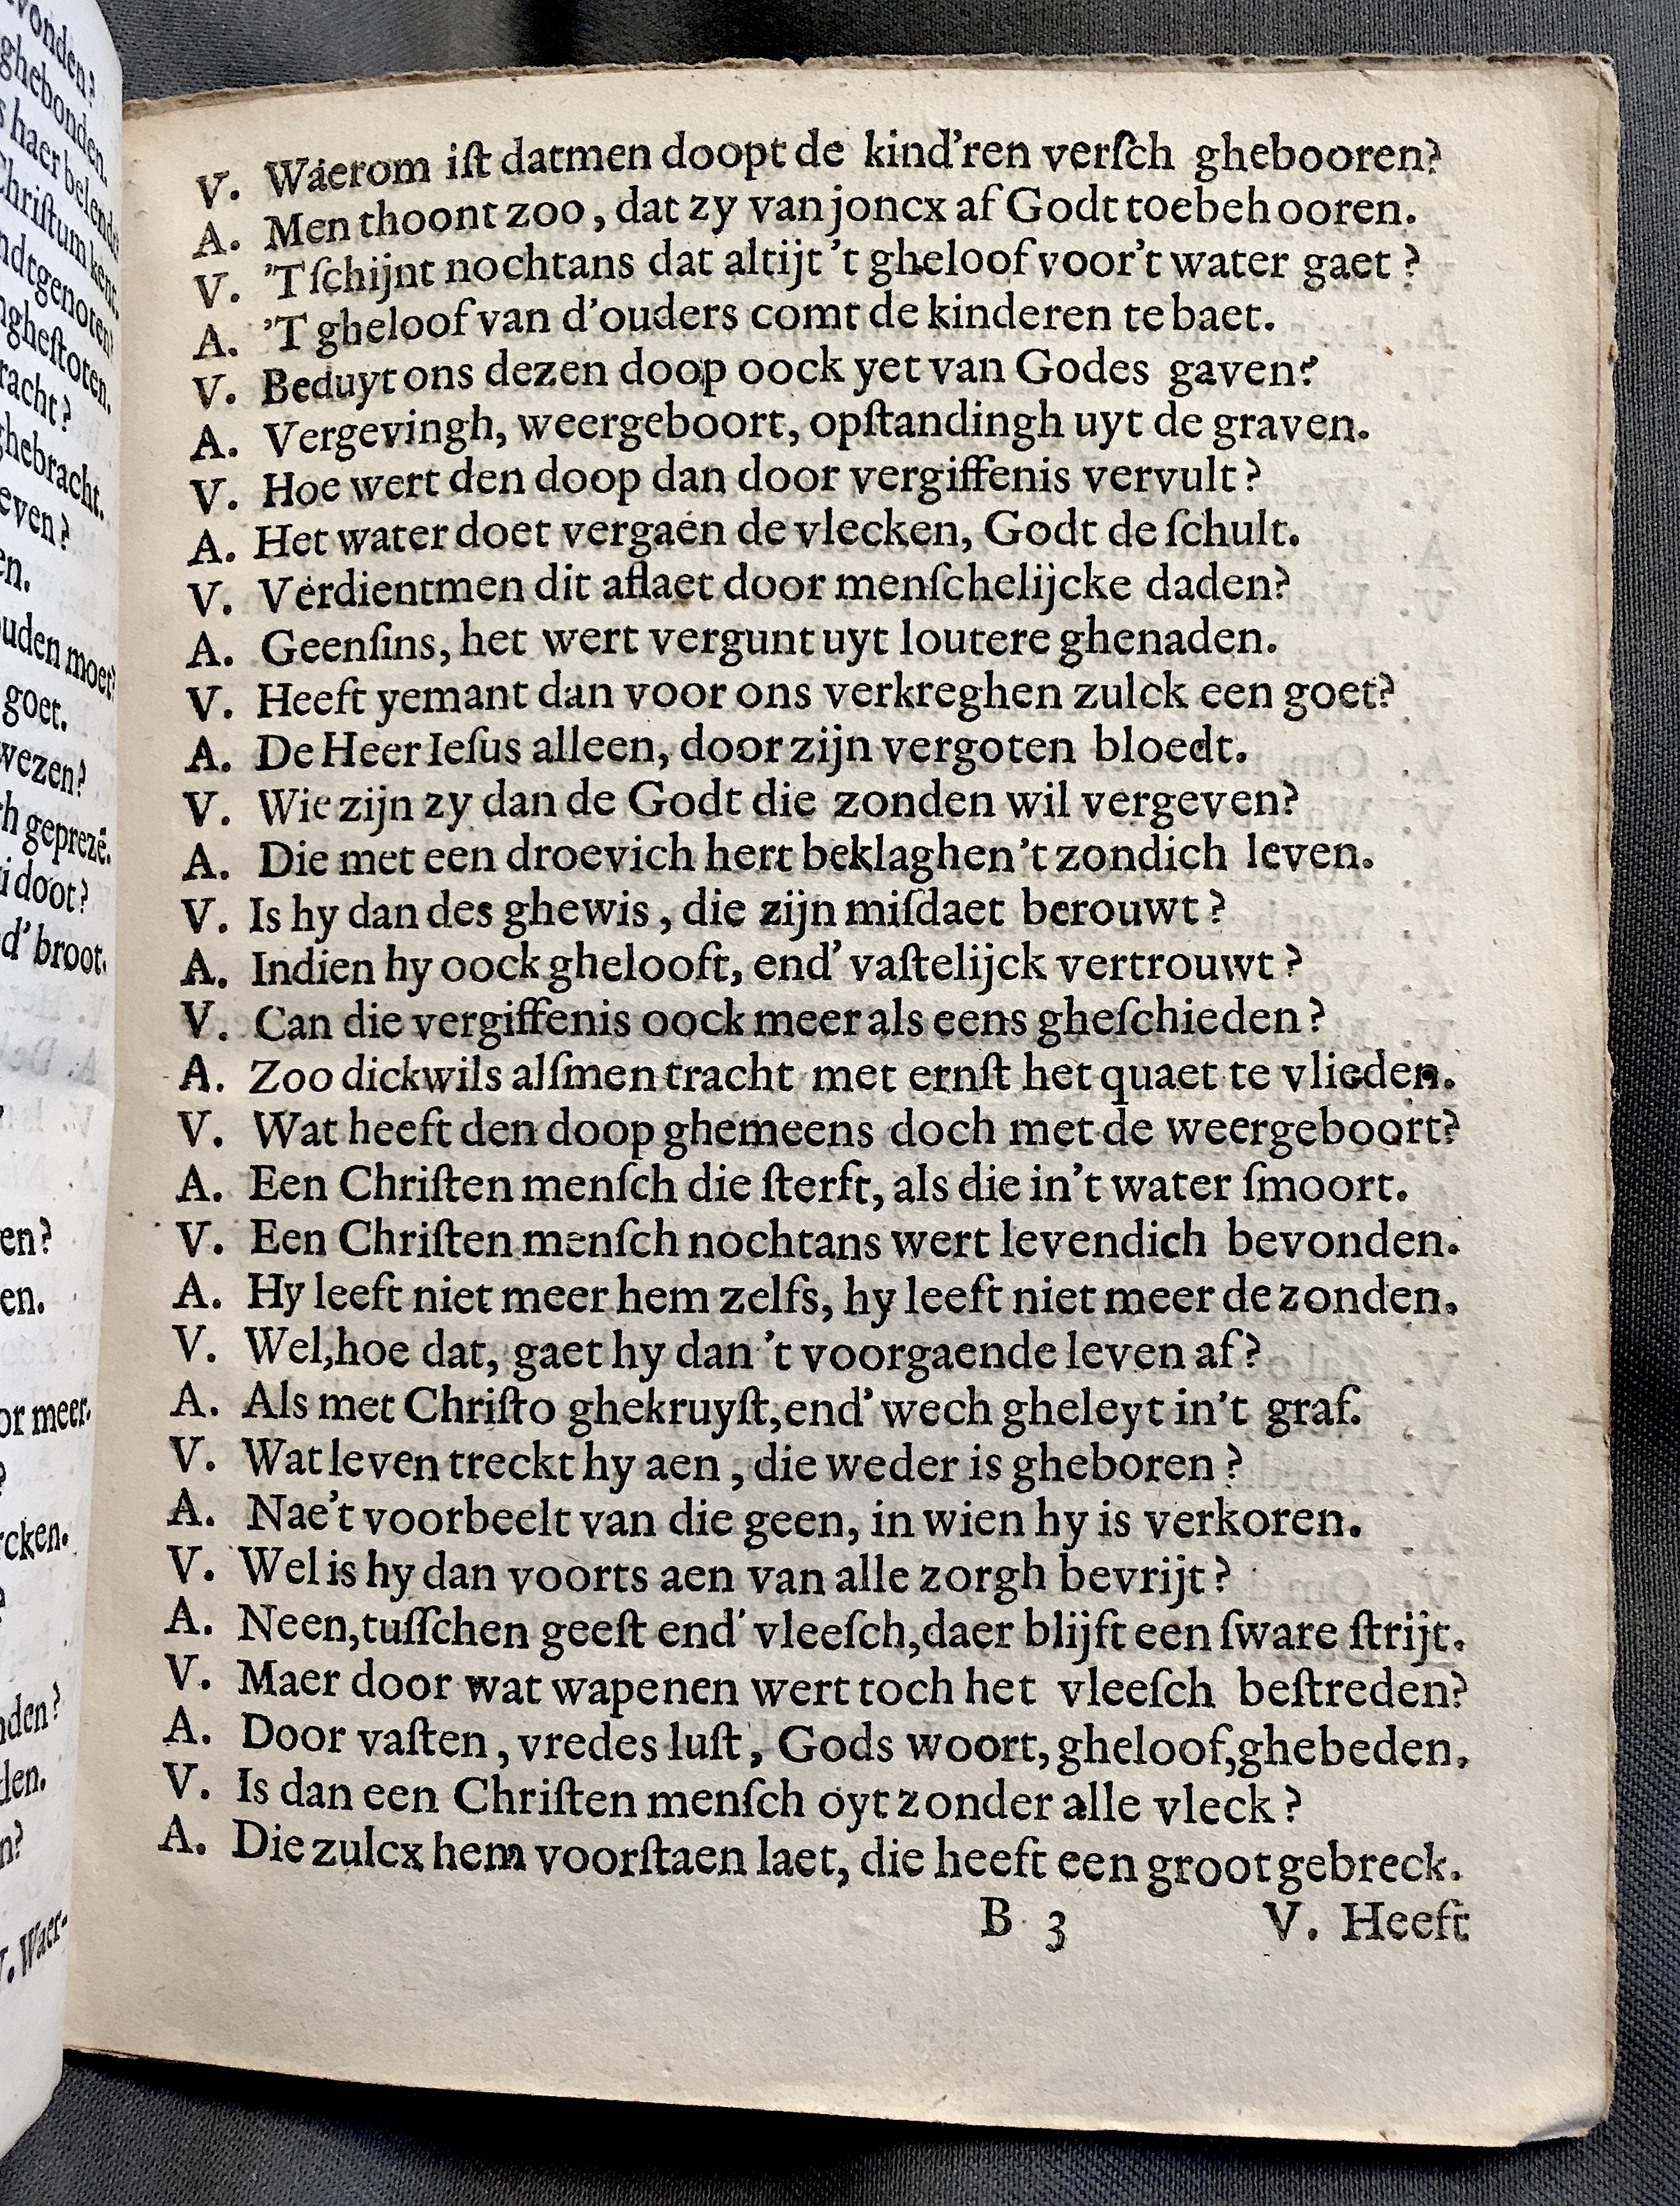 V. Waerom iſt datmen doopt de kind'ren verſch ghebooren?
A. Men thoont zoo, dat zy van joncx af Godt toebehooren.
V. 'T ſchijnt nochtans dat altijt 't gheloof voor't water gaet?
A. 'T gheloof van d'ouders comt de kinderen te baet.
V. Beduyt ons dezen doop oock yet van Godes gaven?
A. Vergevingh, weergeboort, opſtandingh uyt de graven.
V. Hoe wert den doop dan door vergiffenis vervult?
A. Het water doet vergaen de vlecken, Godt de ſchult.
V. Verdientmen dit aflaet door menſchelijcke daden?
A. Geenſins, het wert vergunt uyt loutere ghenaden.
V. Heeft yemant dan voor ons verkreghen zulck een goet?
A. De Heer Ieſus alleen, door zijn vergoten bloedt.
V. Wie zijn zy dan de Godt die zonden wil vergeven?
A. Die met een droevich hert beklaghen't zondich leven.
V. Is hy dan des ghewis, die zijn miſdaet berouwt?
A. Indien hy oock ghelooft, end' vaſtelijck vertrouwt?
V. Can die vergiffenis oock meer als eens gheſchieden?
A. Zoo dickwils alſmen tracht met ernſt het quaet te vlieden.
V. Wat heeft den doop ghemeens doch met de weergeboort?
A. Een Chriſten menſch die ſterft, als die in't water ſmoort.
V. Een Chriſten menſch nochtans wert levendich bevonden.
A. Hy leeft niet meer hem zelfs, hy leeft niet meer de zonden.
V. Wel, hoe dat, gaet hy dan 't voorgaende leven af?
A. Als met Chriſto ghekruyſt, end' wech gheleyt in't graf.
V. Wat leven treckt hy aen, die weder is gheboren?
A. Nae't voorbeelt van die geen, in wien hy is verkoren.
V. Wel is hy dan voorts aen van alle zorgh bevrijt?
A. Neen, tuſſchen geeſt end' vleeſch, daer blijft een ſware ſtrijt.
V. Maer door wat wapenen wert toch het vleeſch beſtreden?
A. Door vaſten, vredes luſt, Gods woort, gheloof, ghebeden.
V. Is dan een Chriſten menſch oyt zonder alle vleck?
A. Die zulcx hem voorſtaen laet, die heeft een groot gebreck.
B 3 V. Heeft